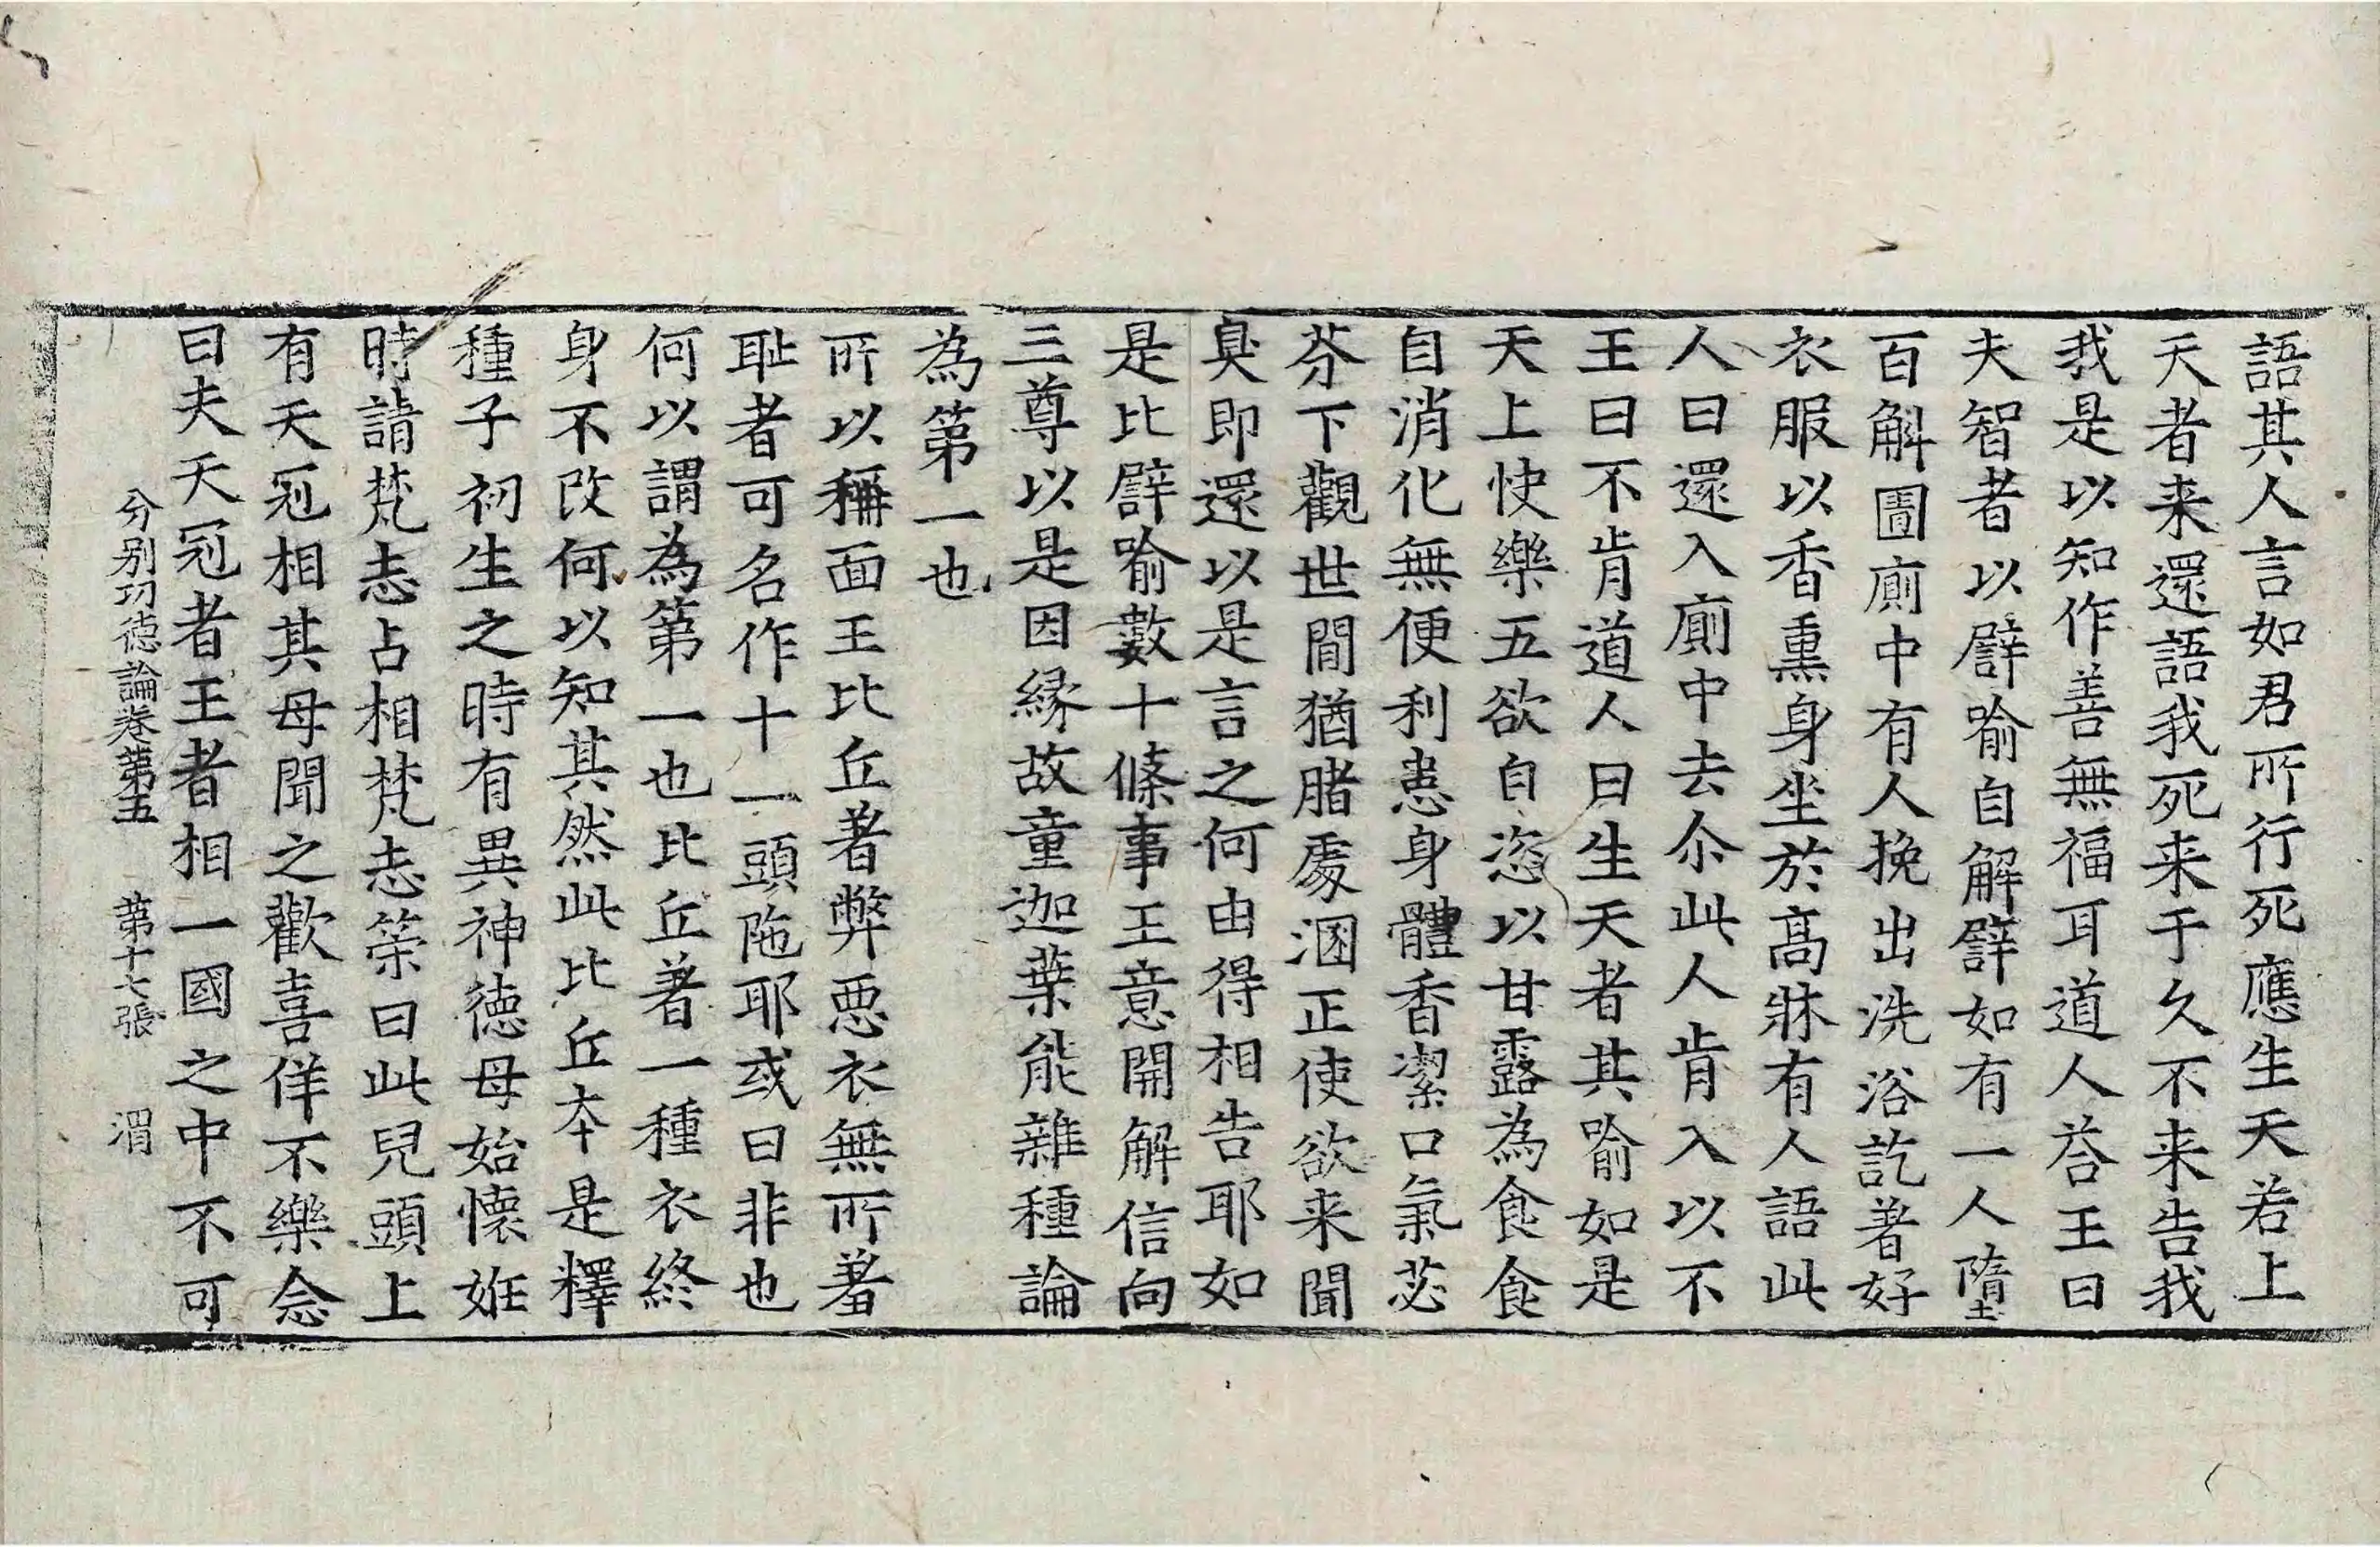 語其人言如君所行死應生天若上
天者来還語我死来于久不来告我
我是以知作善無福耳道人荅王曰
夫智者以譬喻自解譬如有一人墮
百斛圊廁中有人挽出洗浴訖著好
衣服以香熏身坐於高牀有人語此
人曰還入廁中去尒此人肯入以不
王曰不肯道人曰生天者其喻如是
天上快樂五欲自恣以甘露為食食
自消化無便利患身體香潔口氣苾
芬下觀世間猶賭處溷正使欲来聞
臭即還以是言之何由得相告耶如
是比譬喻數十條事王意開解信向
三尊以是因縁故童迦葉能雜種論
為第一也
所以稱面王比丘著弊惡衣無所著
耻者可名作十一頭陁耶或曰非也
何以謂為第一也比丘著一種衣終
身不改何以知其然此比丘本是釋
種子初生之時有異神徳母始懷姙
時請梵志占相梵志荅曰此兒頭上
有天冠相其母聞之歡喜佯不樂念
曰夫天冠者王者相一國之中不可
分别功徳論卷第五　第十七張　渭